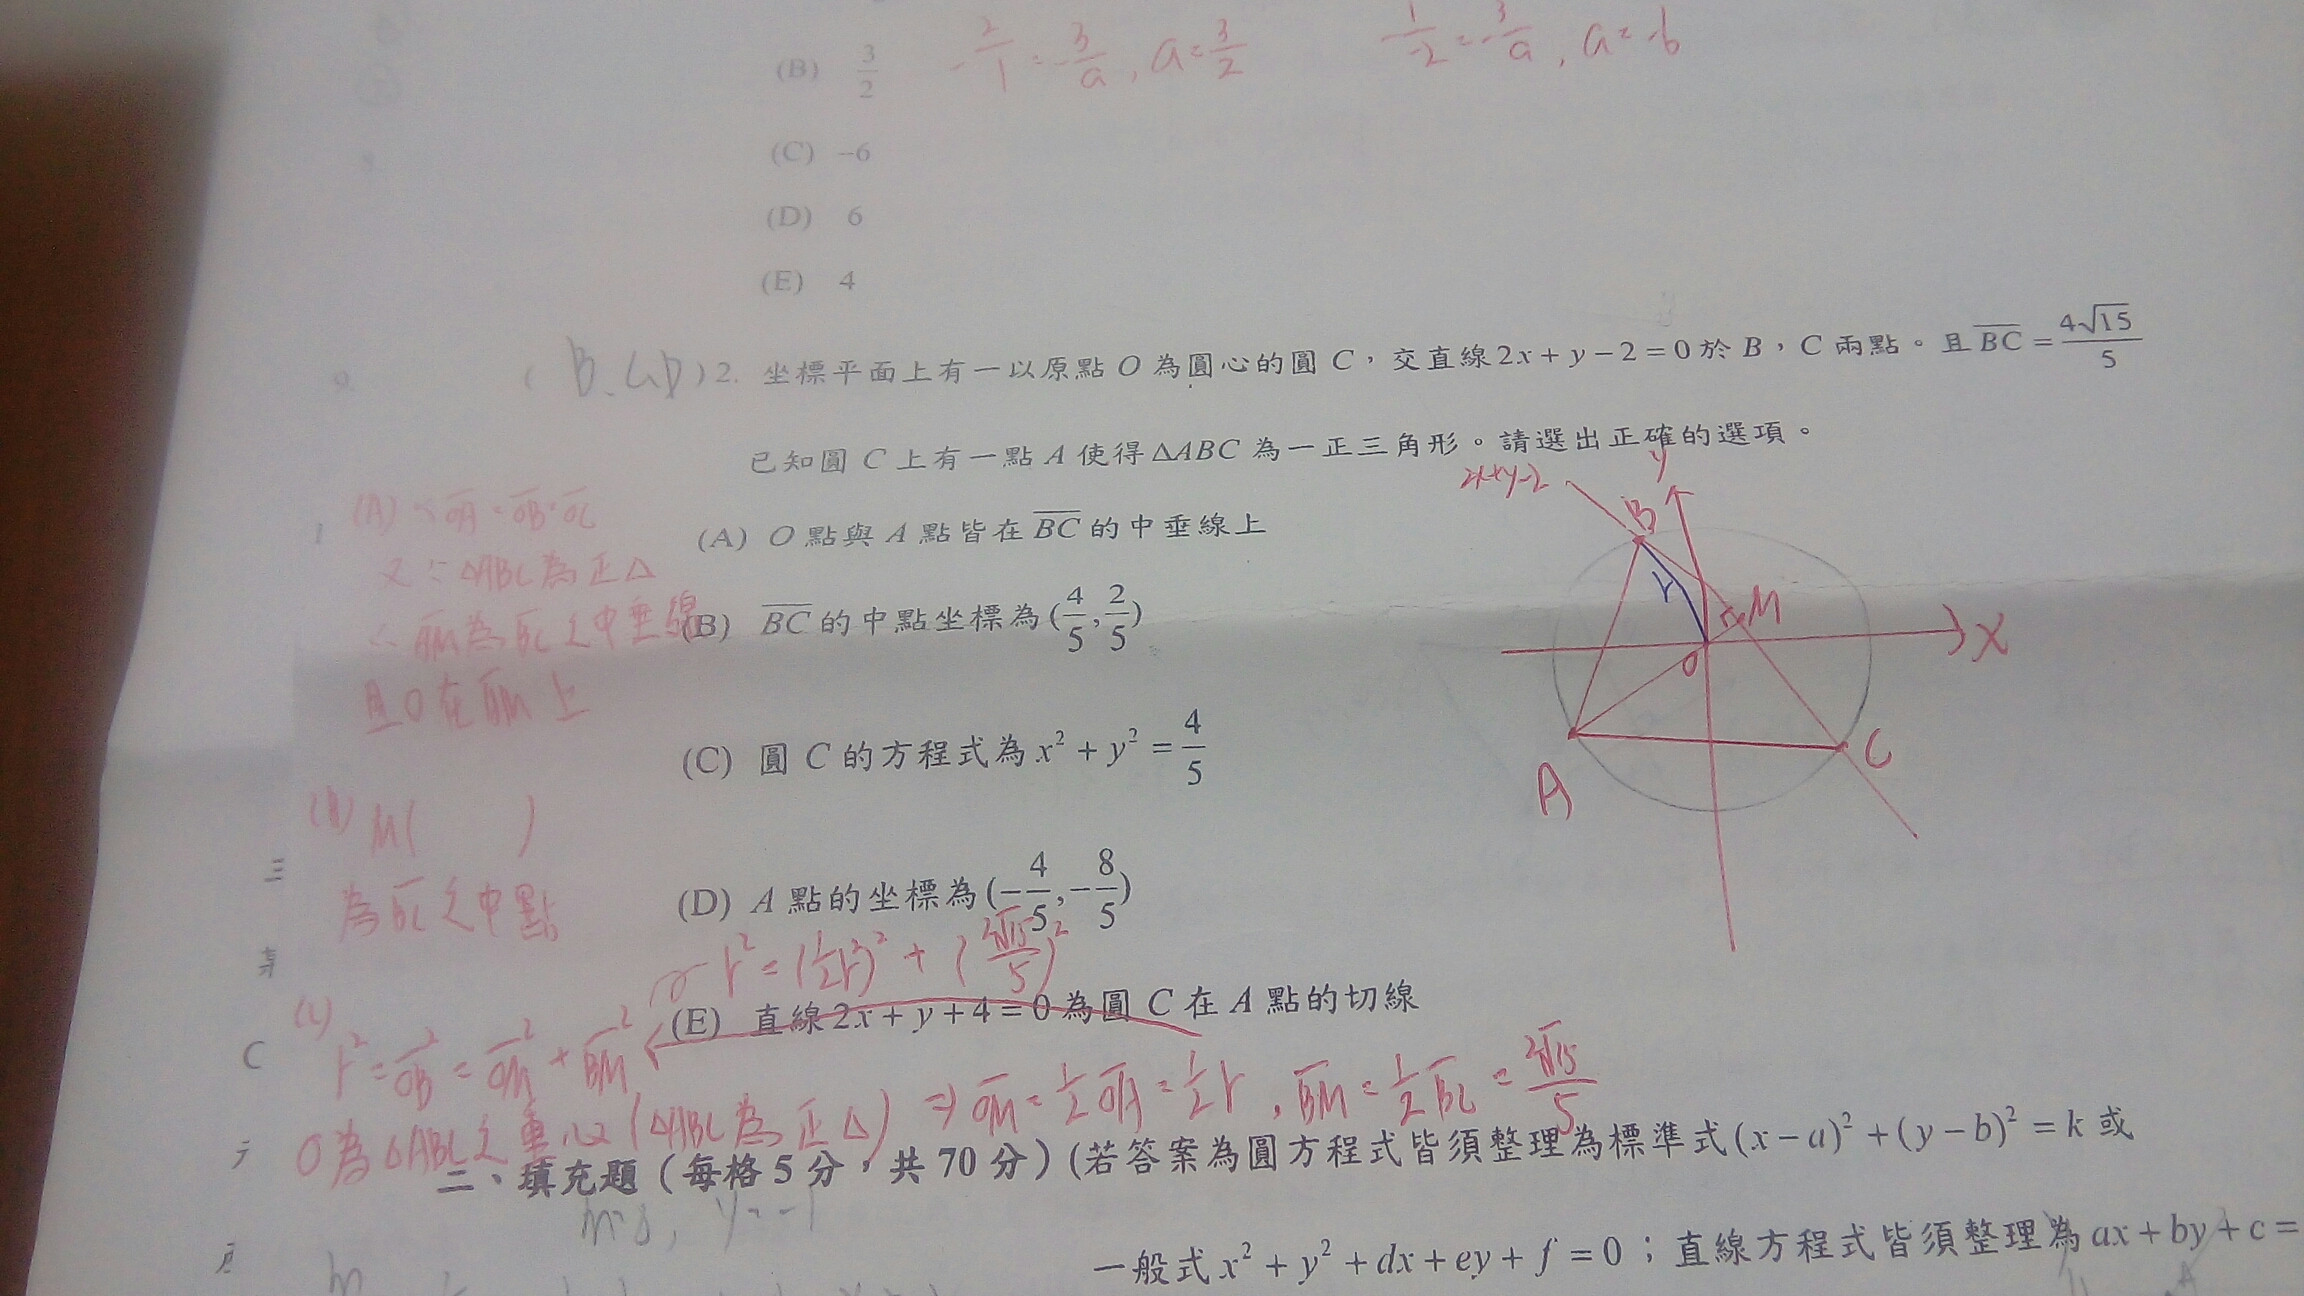 (B) 3/2 -2/1=-3/a, a=3/2 -1/-2=-3/a, a=-6
(C) -6
(D) 6
(E) 4
2. 坐標平面上有一以原點 O 為圓心的圓 C，交直線 2x+y-2=0 於 B，C 兩點。且 \overline{BC}=\frac{4\sqrt{15}}{5}
已知圓 C 上有一點 A 使得 ΔABC 為一正三角形。請選出正確的選項。
(A) O 點與 A 點皆在 \overline{BC} 的中垂線上
(B) \overline{BC} 的中點坐標為 (4/5, 2/5)
(C) 圓 C 的方程式為 x²+y²=4/5
(D) A 點的坐標為 (-4/5, -8/5)
(E) 直線 2x+y+4=0 為圓 C 在 A 點的切線
(A) ∵\overline{OA}=\overline{OB}=\overline{OC}
又∵ΔABC為正Δ
∴\overline{AM}為\overline{BC}之中垂線
且O在\overline{AM}上
(B) M( )
為\overline{BC}之中點
r²=(½r)²+(2√15/5)²
r²=\overline{OB}²=\overline{OM}²+\overline{BM}²
O為ΔABC之重心(ΔABC為正Δ) ⇒\overline{OM}=½\overline{OA}=½r, \overline{BM}=½\overline{BC}=2√15/5
2x+y-2
y
B
r
M
O
X
A
C
二、填充題（每格 5 分，共 70 分）(若答案為圓方程式皆須整理為標準式 (x-a)²+(y-b)²=k 或
一般式 x²+y²+dx+ey+f=0；直線方程式皆須整理為 ax+by+c=